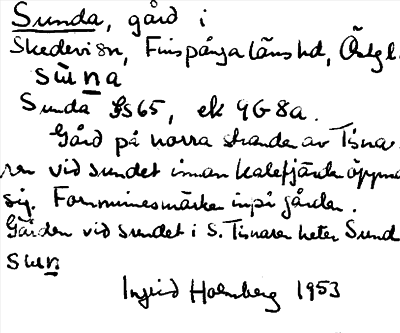 Sunda, gård i
Skedevi sn, Finspånga läns hd, Östgl.
sùna
Sunda GS65, ek 9G8a.
Gård på norra stranden av Tisna-
ren vid sundet innan Kalvfjärden öppna
sig. Fornminnesmärken inpå gården.
Gården vid sundet i S. Tisnaren heter Sund
sun
Ingrid Holmberg 1953